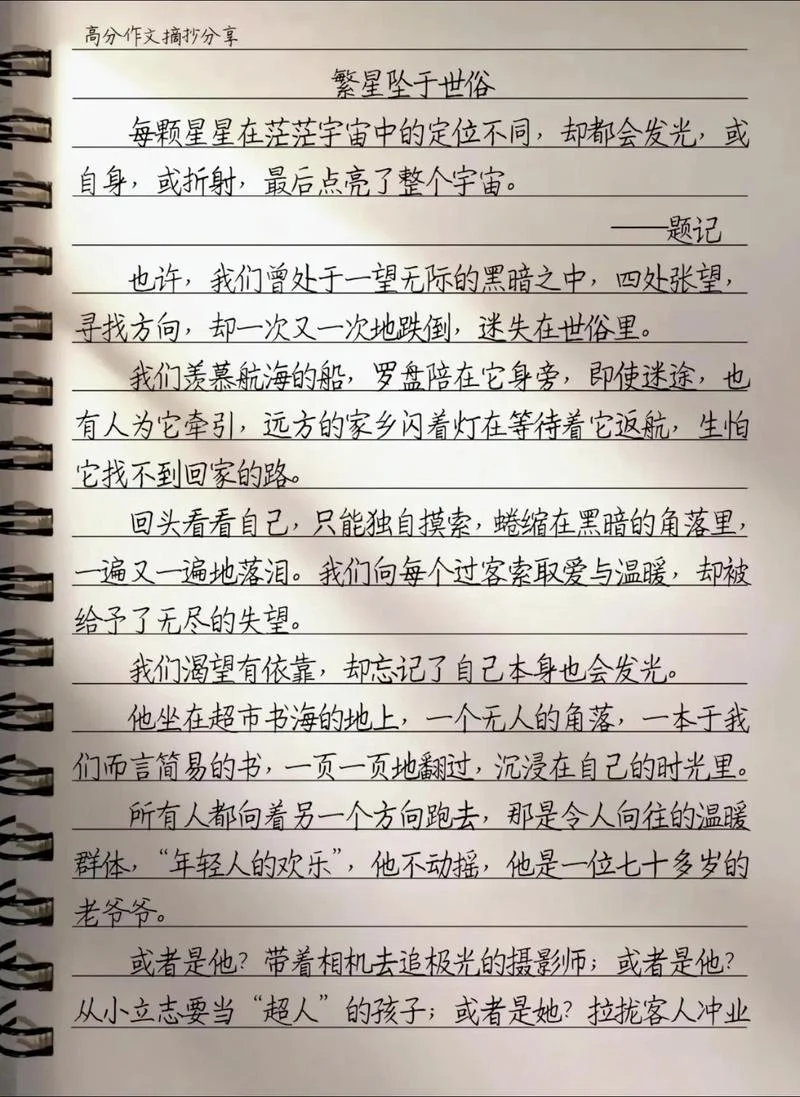 高分作文摘抄分享
繁星坠于世俗
每颗星星在茫茫宇宙中的定位不同，却都会发光，或
自身，或折射，最后点亮了整个宇宙。
——题记
也许，我们曾处于一望无际的黑暗之中，四处张望，
寻找方向，却一次又一次地跌倒，迷失在世俗里。
我们羡慕航海的船，罗盘陪在它身旁，即使迷途，也
有人为它牵引，远方的家乡闪着灯在等待着它返航，生怕
它找不到回家的路。
回头看看自己，只能独自摸索，蜷缩在黑暗的角落里，
一遍又一遍地落泪。我们向每个过客索取爱与温暖，却被
给予了无尽的失望。
我们渴望有依靠，却忘记了自己本身也会发光。
他坐在超市书海的地上，一个无人的角落，一本于我
们而言简易的书，一页一页地翻过，沉浸在自己的时光里。
所有人都向着另一个方向跑去，那是令人向往的温暖
群体，“年轻人的欢乐”，他不动摇，他是一位七十多岁的
老爷爷。
或者是他？带着相机去追极光的摄影师；或者是他？
从小立志要当“超人”的孩子；或者是她？拉拢客人冲业